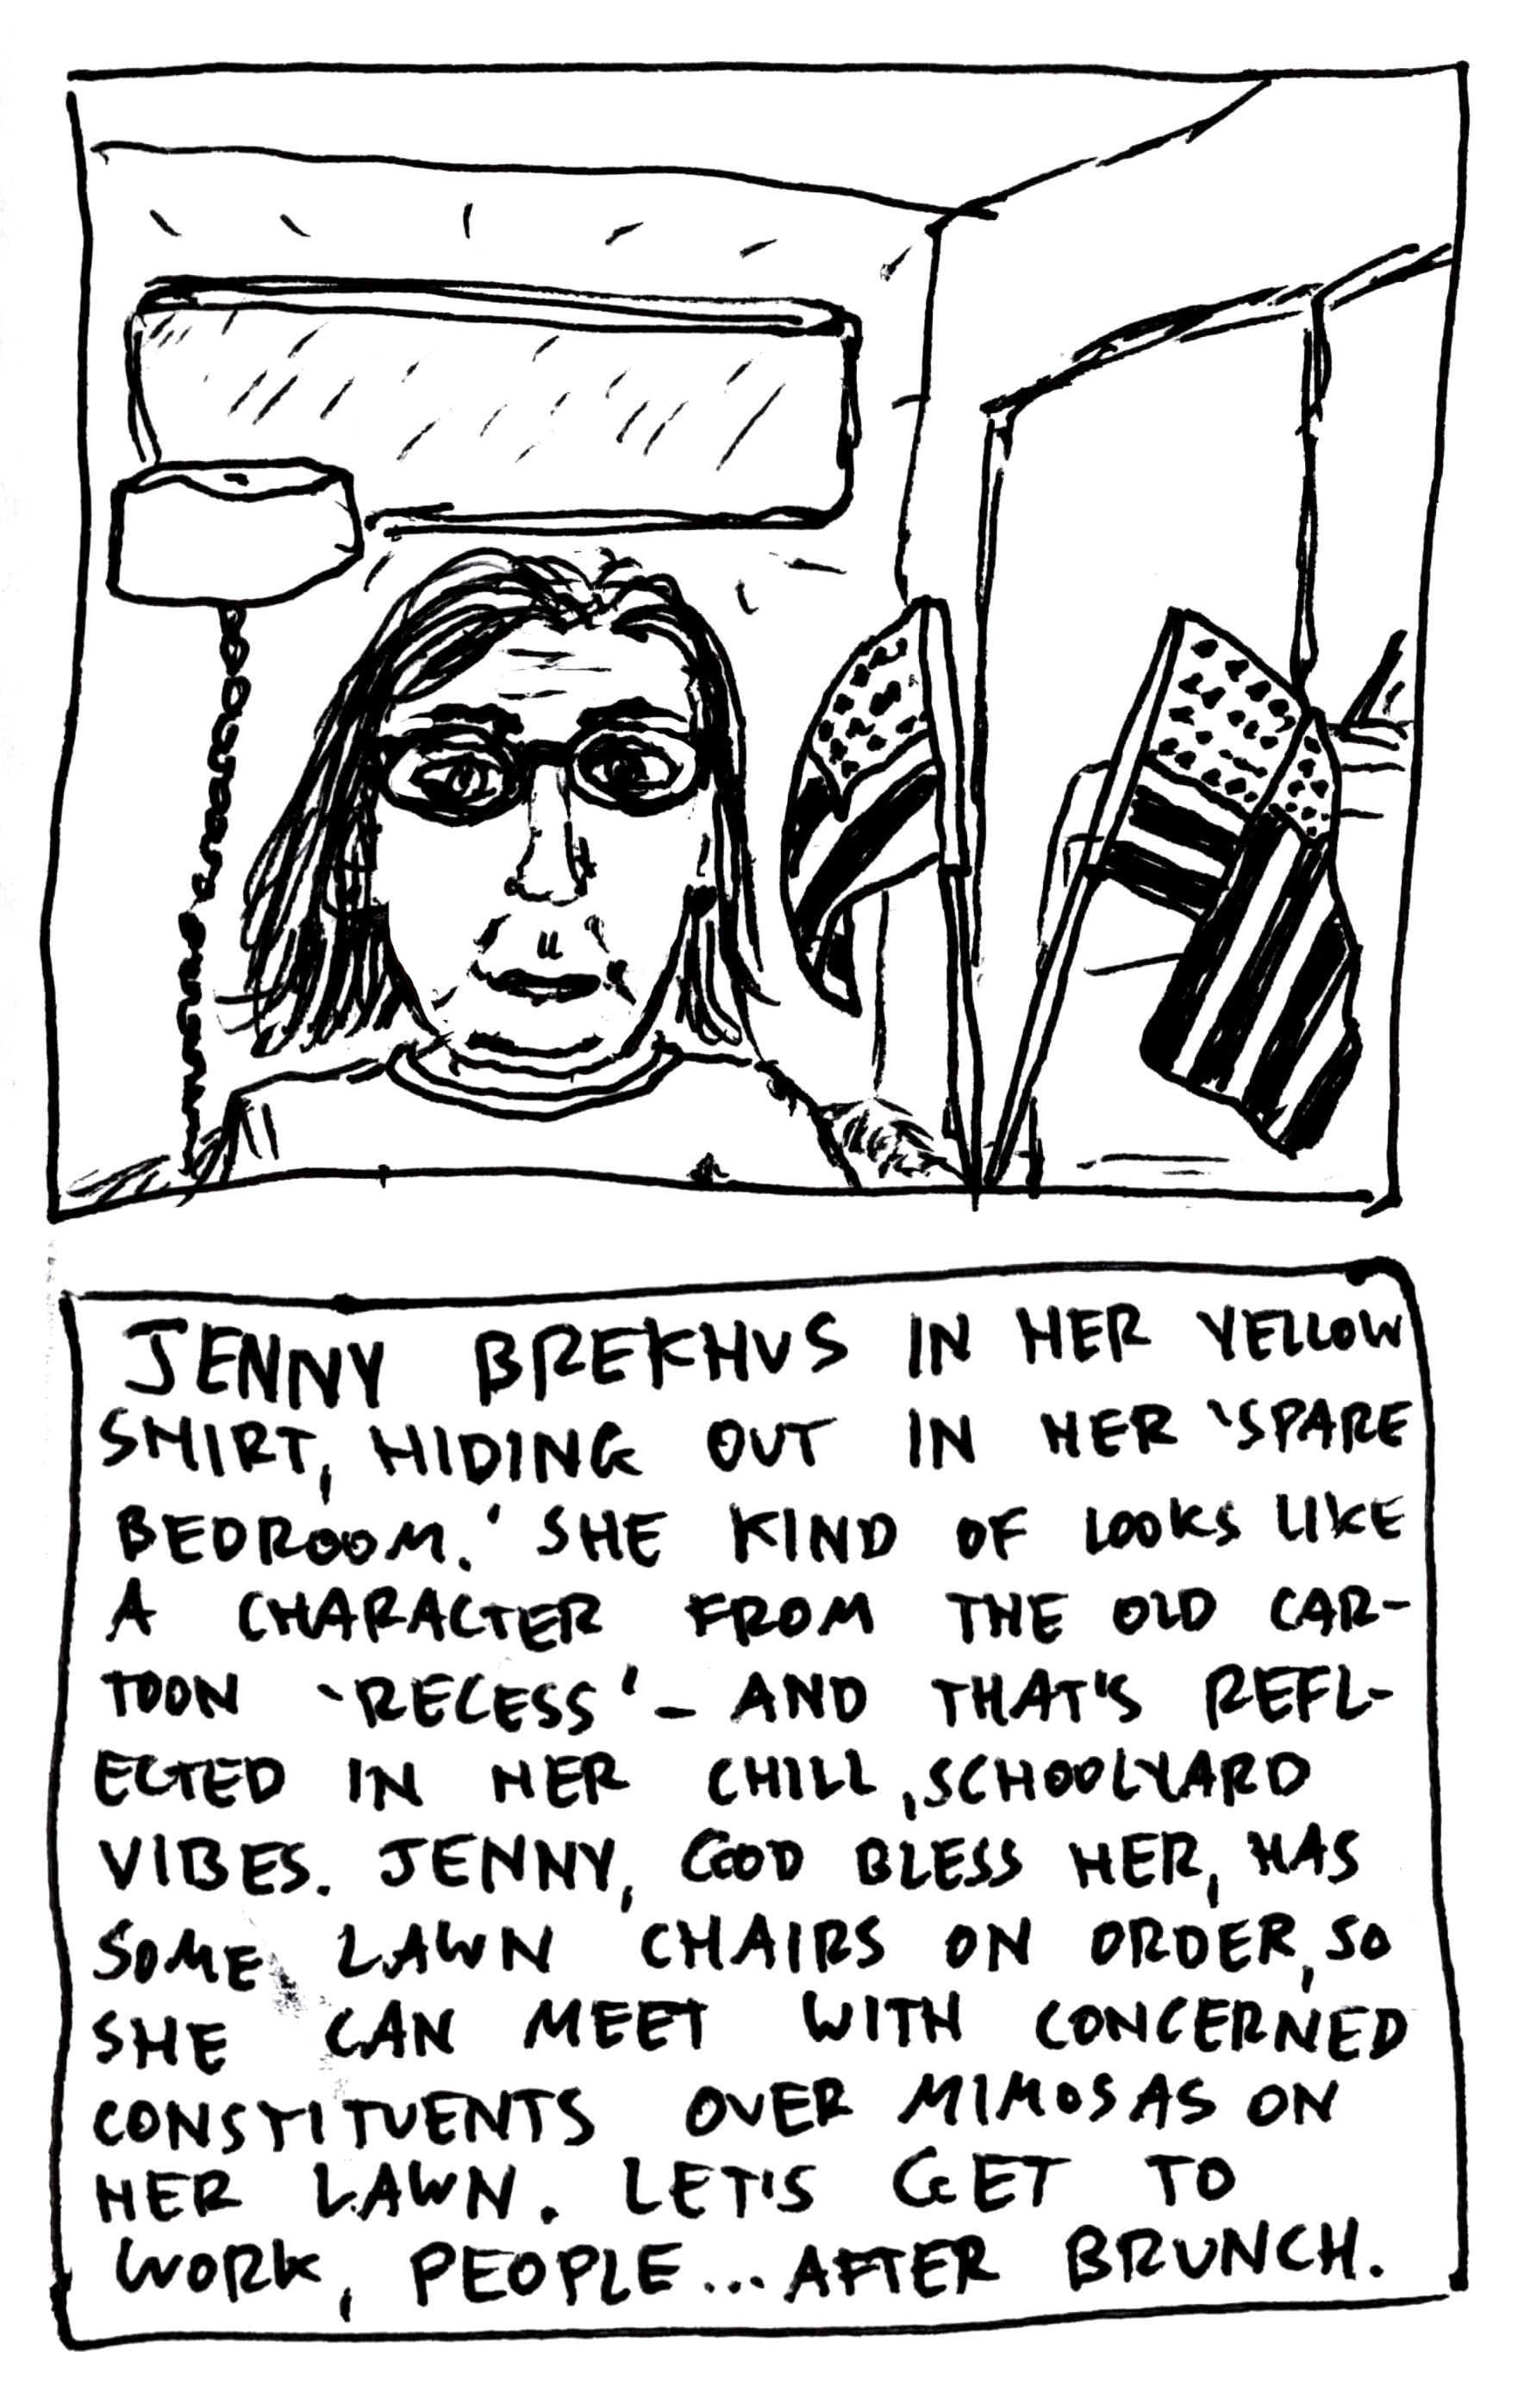 JENNY BREKHUS IN HER YELLOW
SHIRT, HIDING OUT IN HER 'SPARE
BEDROOM.' SHE KIND OF LOOKS LIKE
A CHARACTER FROM THE OLD CAR-
TOON 'RECESS' - AND THAT'S REFL-
ECTED IN HER CHILL, SCHOOLYARD
VIBES. JENNY, GOD BLESS HER, HAS
SOME LAWN CHAIRS ON ORDER, SO
SHE CAN MEET WITH CONCERNED
CONSTITUENTS OVER MIMOSAS ON
HER LAWN. LET'S GET TO
WORK, PEOPLE... AFTER BRUNCH.